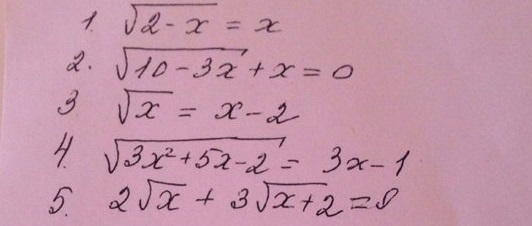 1. √(2 - x) = x
2. √(10 - 3x) + x = 0
3 √x = x - 2
4. √(3x² + 5x - 2) = 3x - 1
5. 2√x + 3√(x + 2) = 0